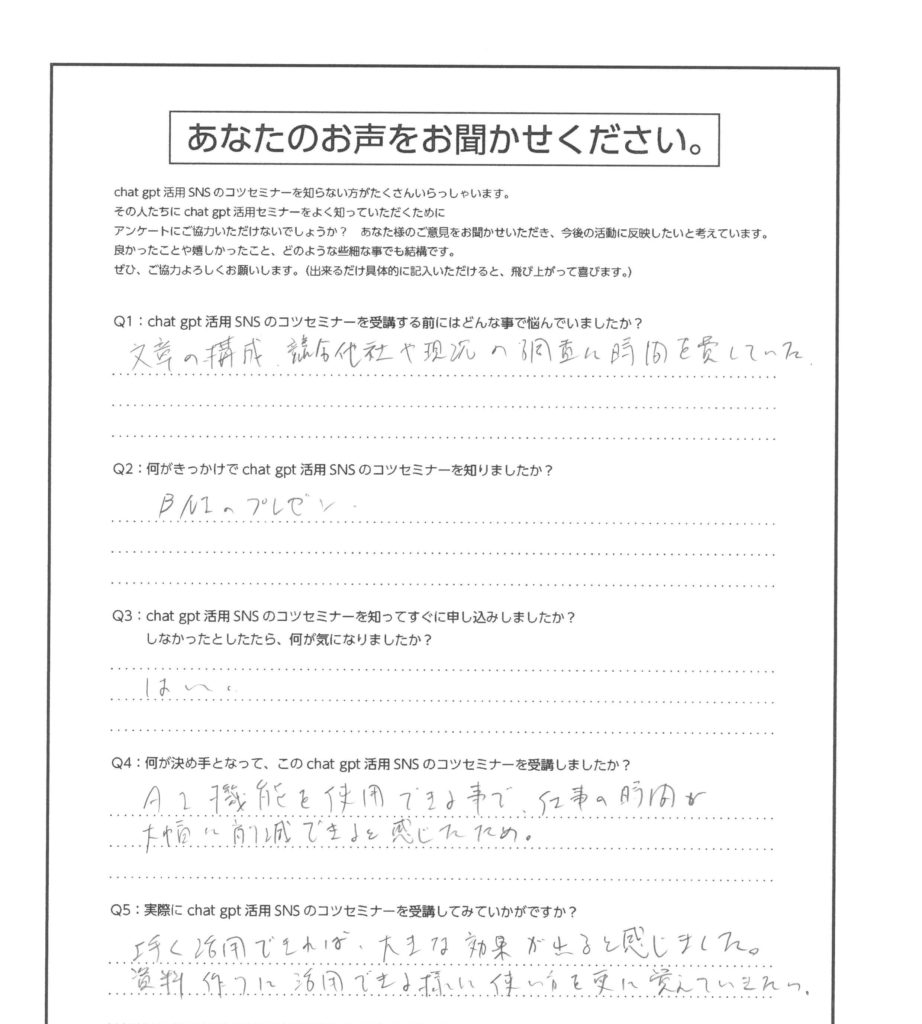 あなたのお声をお聞かせください。
chat gpt 活用 SNS のコツセミナーを知らない方がたくさんいらっしゃいます。
その人たちに chat gpt 活用セミナーをよく知っていただくために
アンケートにご協力いただけないでしょうか？　あなた様のご意見をお聞かせいただき、今後の活動に反映したいと考えています。
良かったことや嬉しかったこと、どのような些細な事でも結構です。
ぜひ、ご協力よろしくお願いします。（出来るだけ具体的に記入いただけると、飛び上がって喜びます。）
Q1：chat gpt 活用 SNS のコツセミナーを受講する前にはどんな事で悩んでいましたか？
文章の構成、競合他社や現況の調査に時間を費していた
Q2：何がきっかけで chat gpt 活用 SNS のコツセミナーを知りましたか？
BNIのプレゼン.
Q3：chat gpt 活用 SNS のコツセミナーを知ってすぐに申し込みしましたか？
しなかったとしたたら、何が気になりましたか？
はい。
Q4：何が決め手となって、この chat gpt 活用 SNS のコツセミナーを受講しましたか？
AI機能を使用できる事で、仕事の時間が
大幅に削減できると感じたため。
Q5：実際に chat gpt 活用 SNS のコツセミナーを受講してみていかがですか？
上手く活用できれば、大きな効果が出ると感じました。
資料作りに活用できる様に使い方を更に覚えていきたい。